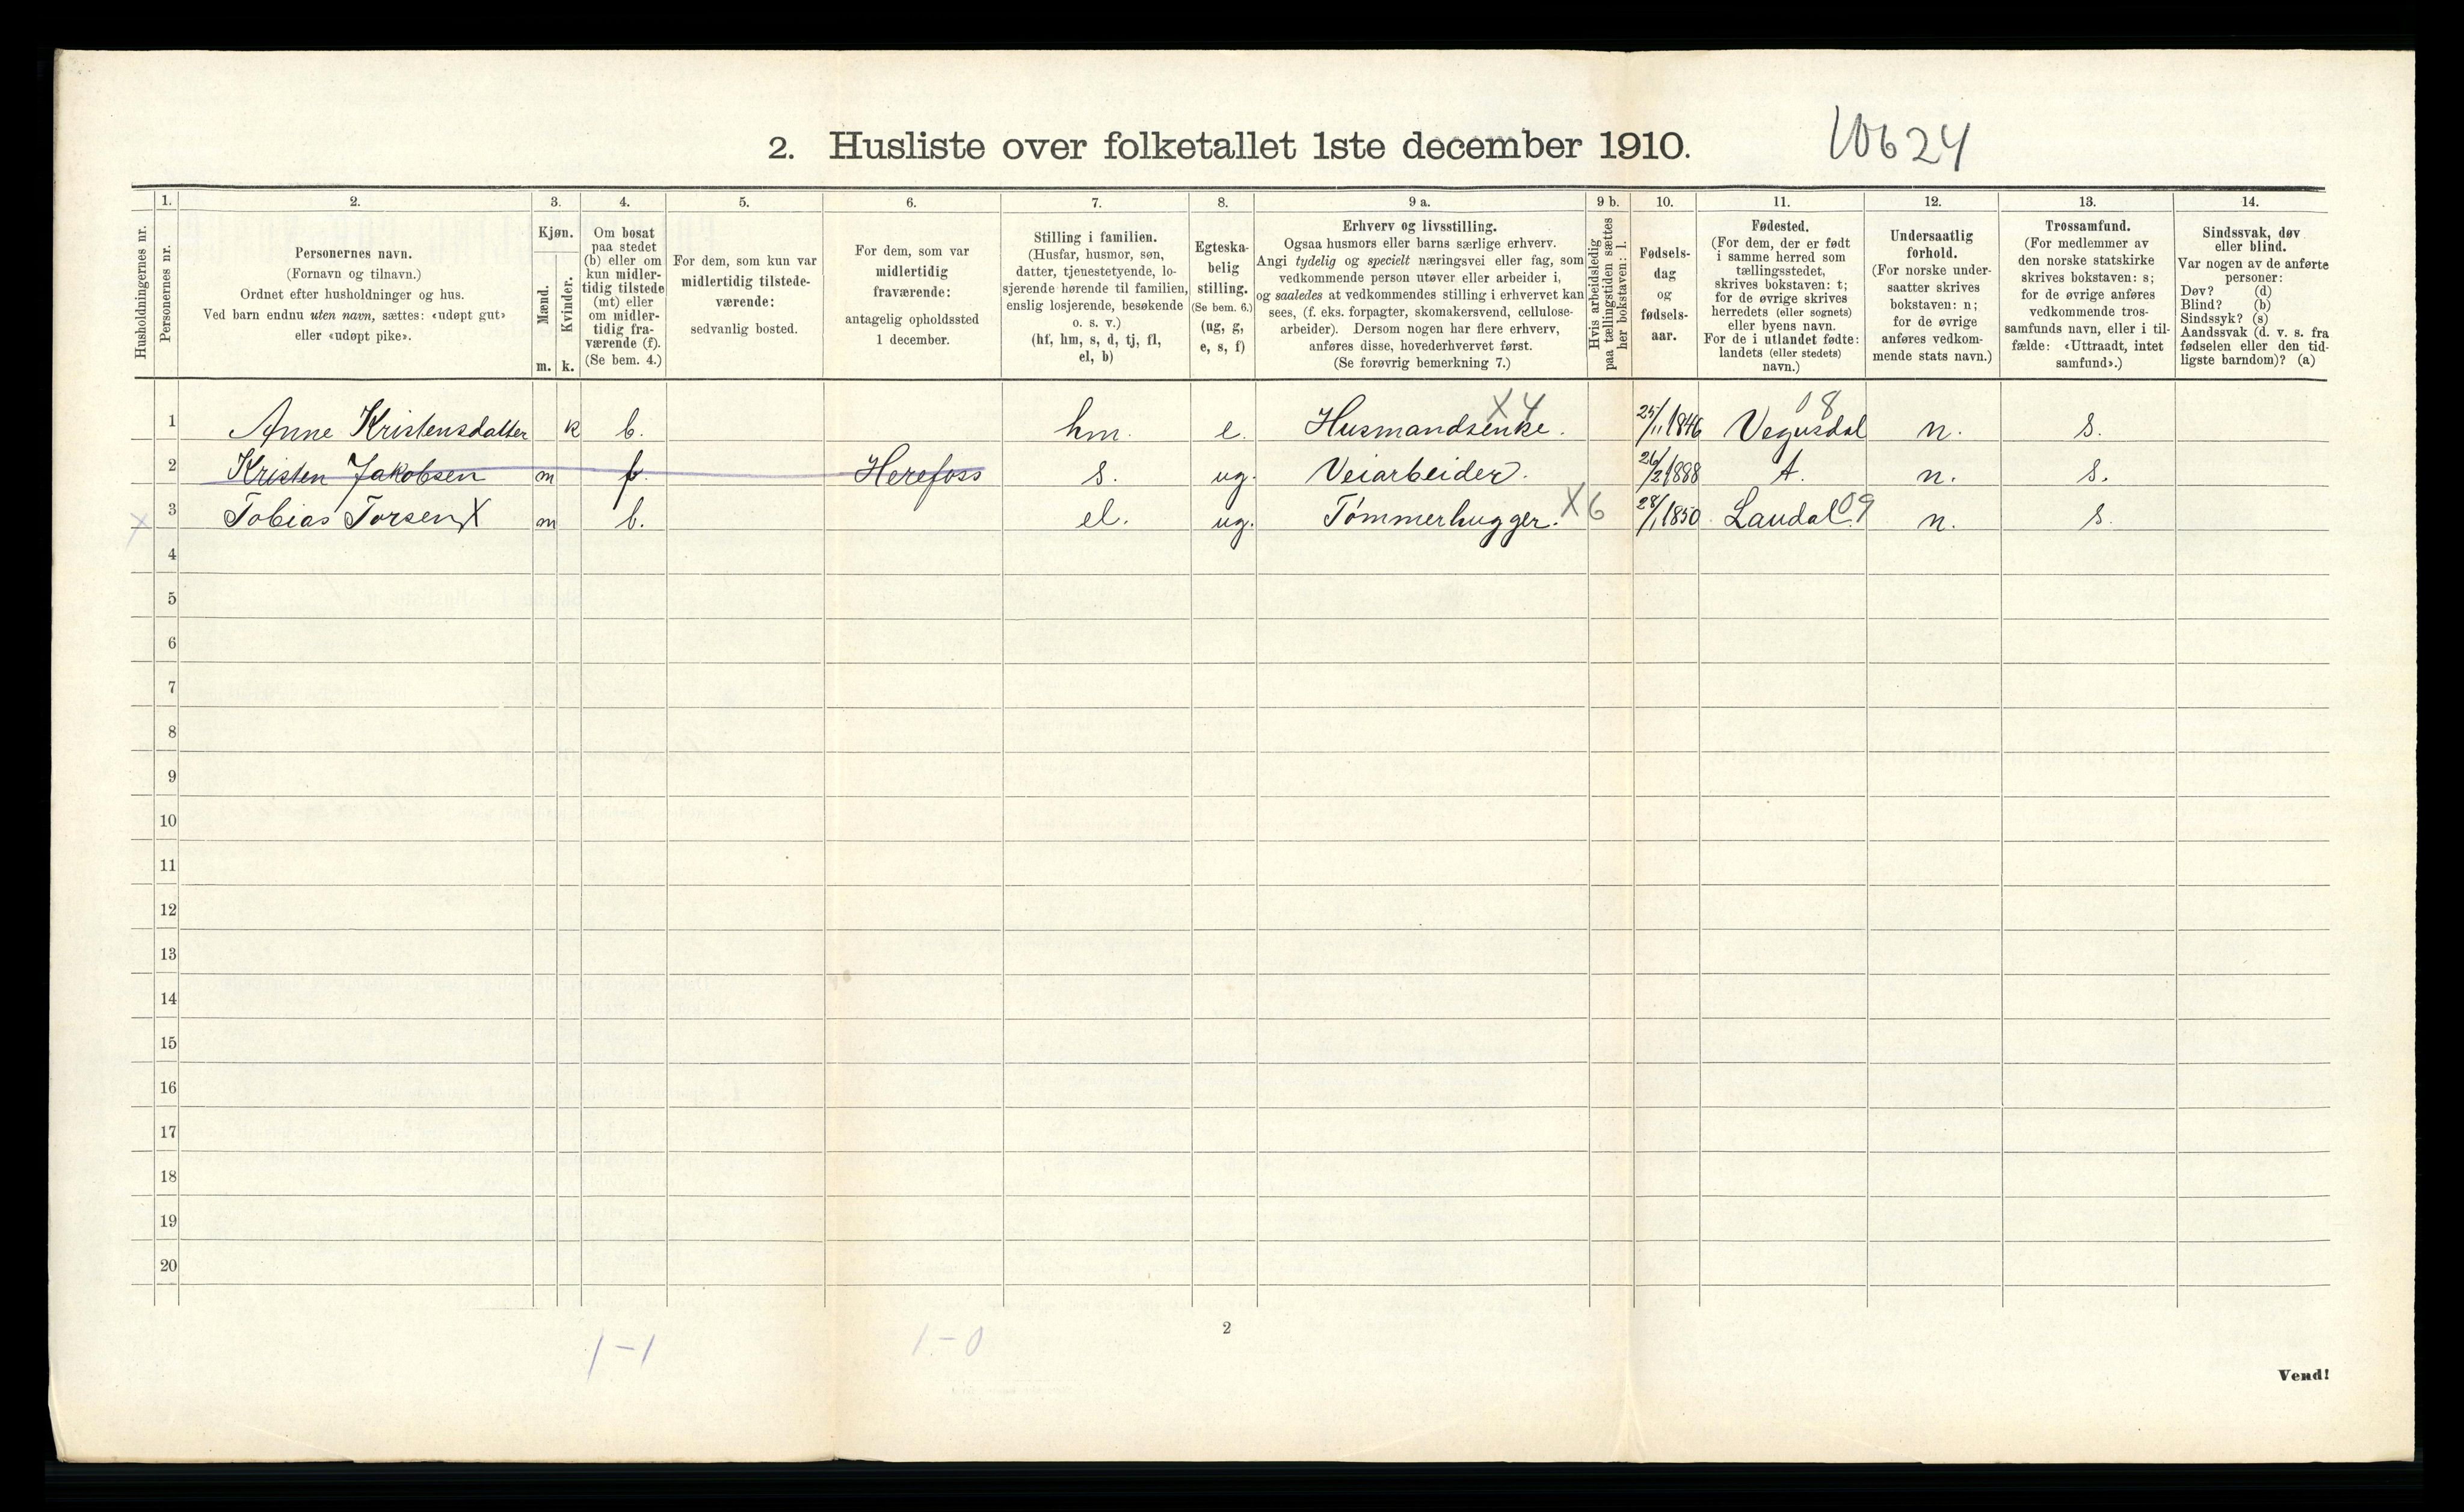 2. Husliste over folketallet 1ste december 1910.
10624
Husholdningernes nr.
1.
Personernes nr.
2.
Personernes navn.
(Fornavn og tilnavn.)
Ordnet efter husholdninger og hus.
Ved barn endnu uten navn, sættes: «udøpt gut»
eller «udøpt pike».
3.
Kjøn.
Mænd.
Kvinder.
m. k.
4.
Om bosat
paa stedet
(b) eller om
kun midler-
tidig tilstede
(mt) eller
om midler-
tidig fra-
værende (f).
(Se bem. 4.)
5.
For dem, som kun var
midlertidig tilstede-
værende:
sedvanlig bosted.
6.
For dem, som var
midlertidig
fraværende:
antagelig opholdssted
1 december.
7.
Stilling i familien.
(Husfar, husmor, søn,
datter, tjenestetyende, lo-
sjerende hørende til familien,
enslig losjerende, besøkende
o. s. v.)
(hf, hm, s, d, tj, fl,
el, b)
8.
Egteska-
belig
stilling.
(Se bem. 6.)
(ug, g,
e, s, f)
9 a.
Erhverv og livsstilling.
Ogsaa husmors eller barns særlige erhverv.
Angi tydelig og specielt næringsvei eller fag, som
vedkommende person utøver eller arbeider i,
og saaledes at vedkommendes stilling i erhvervet kan
sees, (f. eks. forpagter, skomakersvend, cellulose-
arbeider). Dersom nogen har flere erhverv,
anføres disse, hovederhvervet først.
(Se forøvrig bemerkning 7.)
9 b.
Hvis arbeidsledig
paa tællingstiden sættes
her bokstaven: l.
10.
Fødsels-
dag
og
fødsels-
aar.
11.
Fødested.
(For dem, der er født
i samme herred som
tællingsstedet,
skrives bokstaven: t;
for de øvrige skrives
herredets (eller sognets)
eller byens navn.
For de i utlandet fødte:
landets (eller stedets)
navn.)
12.
Undersaatlig
forhold.
(For norske under-
saatter skrives
bokstaven: n;
for de øvrige
anføres vedkom-
mende stats navn.)
13.
Trossamfund.
(For medlemmer av
den norske statskirke
skrives bokstaven: s;
for de øvrige anføres
vedkommende tros-
samfunds navn, eller i til-
fælde: «Uttraadt, intet
samfund».)
14.
Sindssvak, døv
eller blind.
Var nogen av de anførte
personer:
Døv? (d)
Blind? (b)
Sindssyk? (s)
Aandssvak (d. v. s. fra
fødselen eller den tid-
ligste barndom)? (a)
X 4 08
1 Anne Kristensdatter k b. hm. e. Husmandsenke. 25/11 1846 Vegusdal n. s.
2 Kristen Jakobsen m f. Herefoss s. ug. Veiarbeider. 26/2 1888 t. n. s.
X 3 Tobias Torsen X m b. el. ug. Tømmerhugger. X6 28/1 1850 Laudal. 09 n. s.
4
5
6
7
8
9
10
11
12
13
14
15
16
17
18
19
20
1-1 1-0
2
Vend!